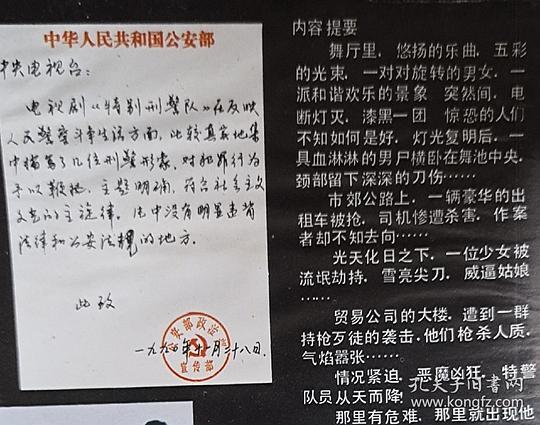 中华人民共和国公安部
中央电视台：
电视剧《特别刑警队》在反映
人民警察斗争生活方面，比较真实地集
中描写了几位刑警形象，对犯罪行为
予以鞭挞，主题明确，符合社会主义
文艺的主旋律。片中没有明显违背
法律和公安法规的地方。
此致
公安部政治部
宣传部
一九九〇年十一月二十八日.
内容提要
舞厅里，悠扬的乐曲，五彩
的光束，一对对旋转的男女，一
派和谐欢乐的景象 突然间，电
断灯灭，漆黑一团 惊恐的人们
不知如何是好，灯光复明后，一
具血淋淋的男尸横卧在舞池中央，
颈部留下深深的刀伤……
市郊公路上，一辆豪华的出
租车被抢，司机惨遭杀害，作案
者却不知去向……
光天化日之下，一位少女被
流氓劫持，雪亮尖刀，威逼姑娘
……
贸易公司的大楼，遭到一群
持枪歹徒的袭击，他们枪杀人质，
气焰嚣张……
情况紧迫，恶魔凶狂，特警
队员从天而降！
那里有危难，那里就出现他
孔夫子旧书网
www.kongfz.com